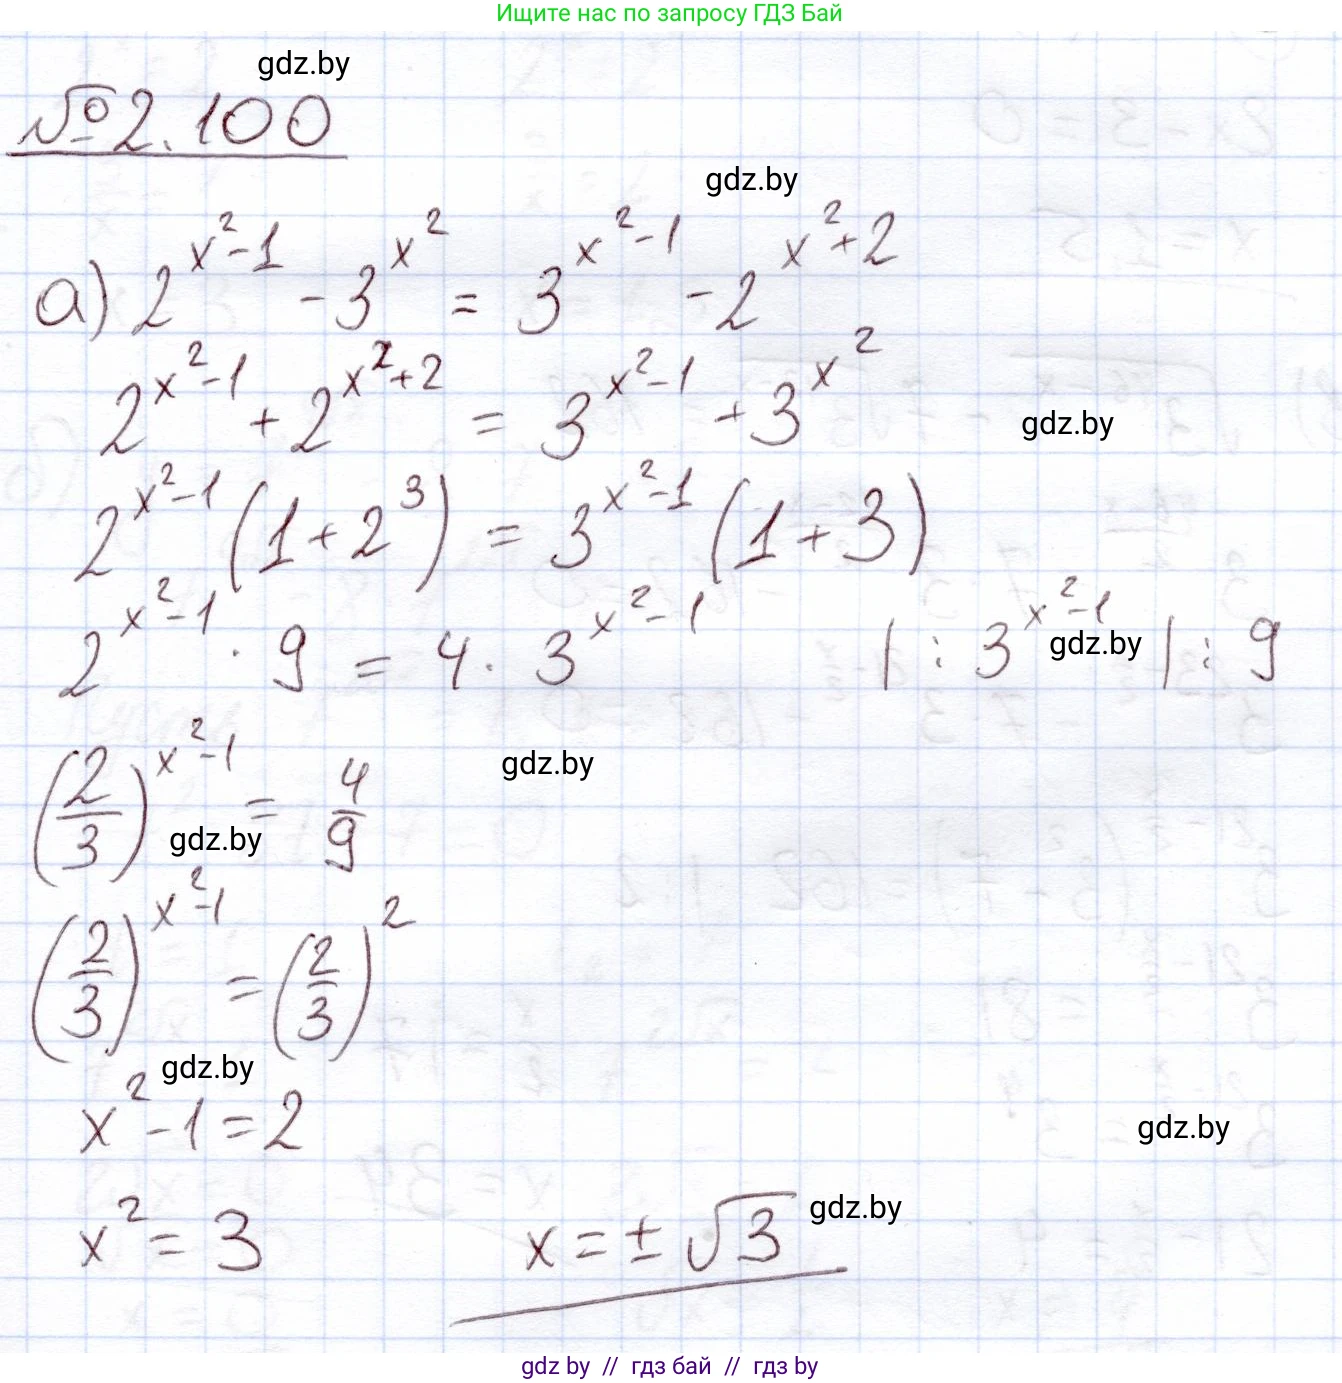 Ищите нас по запросу ГДЗ Бай
gdz.by
№ 2.100
gdz.by
а) 2^{x²-1} - 3^{x²} = 3^{x²-1} - 2^{x²+2}
2^{x²-1} + 2^{x²+2} = 3^{x²-1} + 3^{x²}
gdz.by
2^{x²-1} (1 + 2³) = 3^{x²-1} (1 + 3)
2^{x²-1} · 9 = 4 · 3^{x²-1} | : 3^{x²-1} | : 9
gdz.by
(2/3)^{x²-1} = 4/9
gdz.by
gdz.by
(2/3)^{x²-1} = (2/3)²
gdz.by
x² - 1 = 2
gdz.by
x² = 3 x = ± √3
gdz.by
gdz by // гдз бай // гдз by